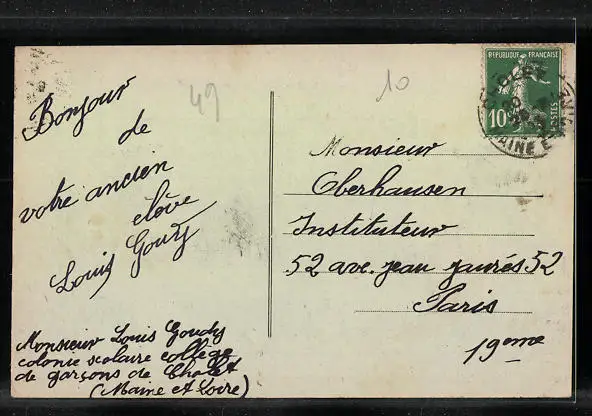 49
10
REPUBLIQUE FRANÇAISE
10c
POSTES
CHOLET
MAINE ET
Bonjour
de
votre ancien
élève
Louis Goudy
Monsieur Louis Goudy
colonie scolaire collège
de garçons de Cholet
(Maine et Loire)
Monsieur
Oberhausen
Instituteur
52 ave. jean jaurés 52
Paris
19eme